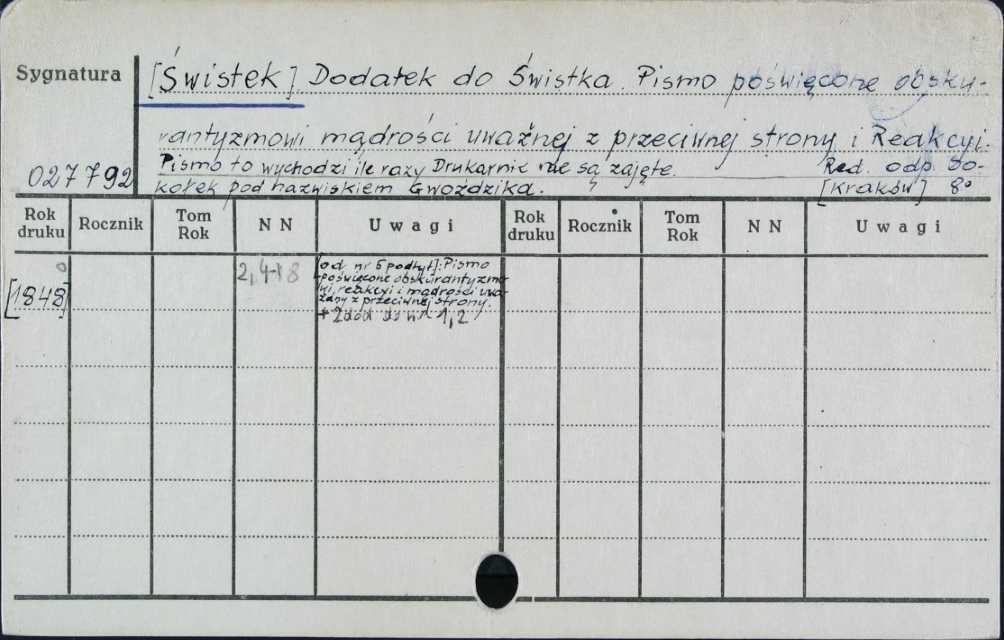 Sygnatura
[Świstek] Dodatek do Świstka. Pismo poświęcone obsku-
rantyzmowi mądrości uważnej z przeciwnej strony i Reakcyi.
Pismo to wychodzi ile razy Drukarnie nie są zajęte. Red. odp. So-
027792
kołek pod nazwiskiem Gwoździka. [Kraków] 8°
Rok druku Rocznik Tom Rok N N Uwagi Rok druku Rocznik Tom Rok N N Uwagi
[1848] 2,4-18 [od nr 5 podtyt]: Pismo
poświęcone obskurantyzmo-
wi, reakcyi i mądrości uwa-
żany z przeciwnej strony.
+ 2 dod do nr 1,2